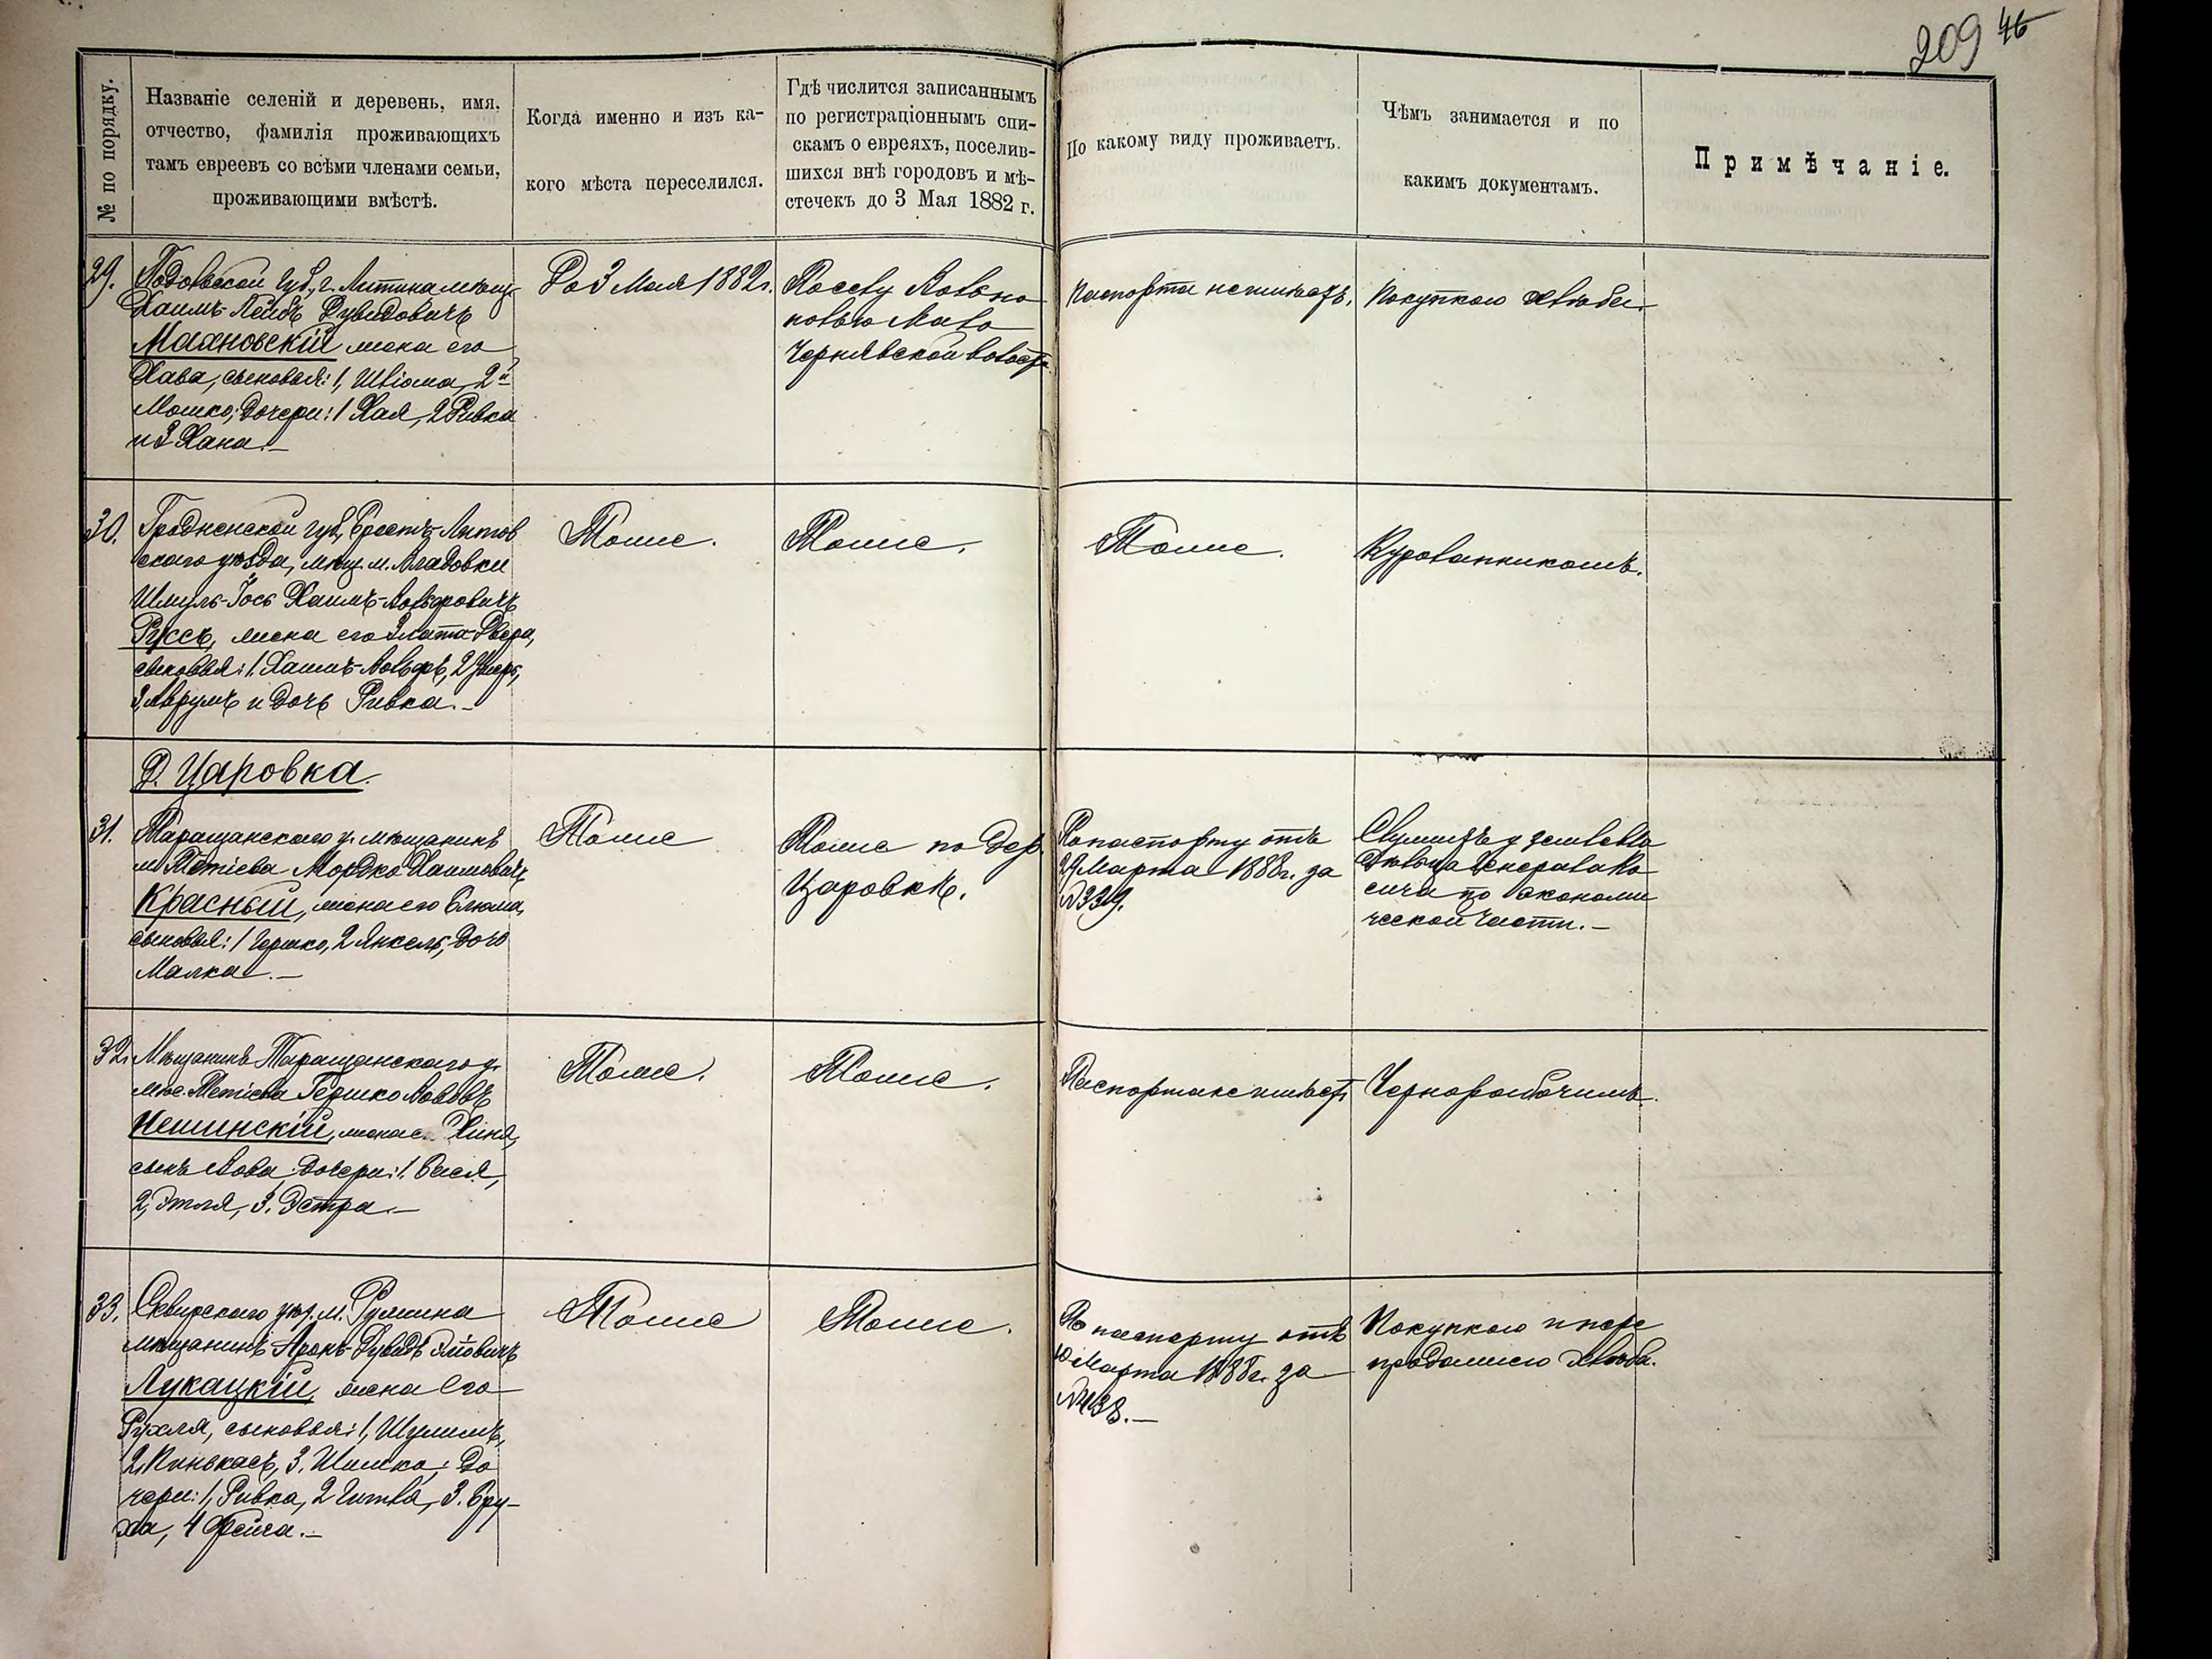 209 46
№ по порядку.
Названіе селеній и деревень, имя,
отчество, фамилія проживающихъ
тамъ евреевъ со всѣми членами семьи,
проживающими вмѣстѣ.
Когда именно и изъ ка-
кого мѣста переселился.
Гдѣ числится записаннымъ
по регистраціоннымъ спи-
скамъ о евреяхъ, поселив-
шихся внѣ городовъ и мѣ-
стечекъ до 3 Мая 1882 г.
По какому виду проживаетъ.
Чѣмъ занимается и по
какимъ документамъ.
Примѣчаніе.
29.
Подольской губ., г. Литина мѣщ.
Хаимъ-Лейбъ Дувидовичъ
Махновскій жена его
Хава, сыновья: 1, Шліома, 2й
Мошко; дочери: 1 Хая, 2 Ривка
и 3 Хана.—
До 3 Мая 1882 г.
По селу Вольно
Мало
Чернявской волости
Паспорта неимѣетъ.
Покупкою хлѣба.
30.
Гродненской губ., Брестъ-Литов
скаго уѣзда, мѣщ. м.
Шмуль-Іось Хаимъ-Вольфовичъ
Руссъ, жена его Злата-Двера,
сыновья: 1. Хаимъ-Вольфъ, 2
3, Аврумъ и дочь Ривка.—
Тоже.
Тоже.
Тоже.
Д. Царовка.
31.
Таращанскаго у. мѣщанинъ
м. Тетіева Мордко Хаимовичъ
Красный, жена его Блюма,
сыновья: 1 Гершко, 2 Янкель, дочь
Малка.—
Тоже
Тоже по дер.
Царовкѣ.
По паспорту отъ
29 Марта 1888 г. за
№ 339.
Служитъ у землевла
дѣльца Генерала Ко
сича по экономи
ческой части.—
32.
Мѣщанинъ Таращанскаго у.
мѣс. Тетіева Гершко Вововъ
Нешинскій, жена Хиня,
сынъ Вова, дочери: 1. Бася,
2, Этля, 3. Эстра.—
Тоже.
Тоже.
Паспорта не имѣетъ
Чернорабочимъ.
33.
Сквирскаго уѣз. м. Ружина
мѣщанинъ Аронъ-Дувидъ
Лукацкій, жена его
Рухля, сыновья: 1, Шулимъ,
2, Пинькасъ, 3. Шимка; до
чери: 1, Ривка, 2 Гитля, 3. Бру-
ха, 4 Фейга.—
Тоже
Тоже.
По паспорту отъ
10 Марта 1888 г. за
№ 433.—
Покупкою и пере
продажею хлѣба.